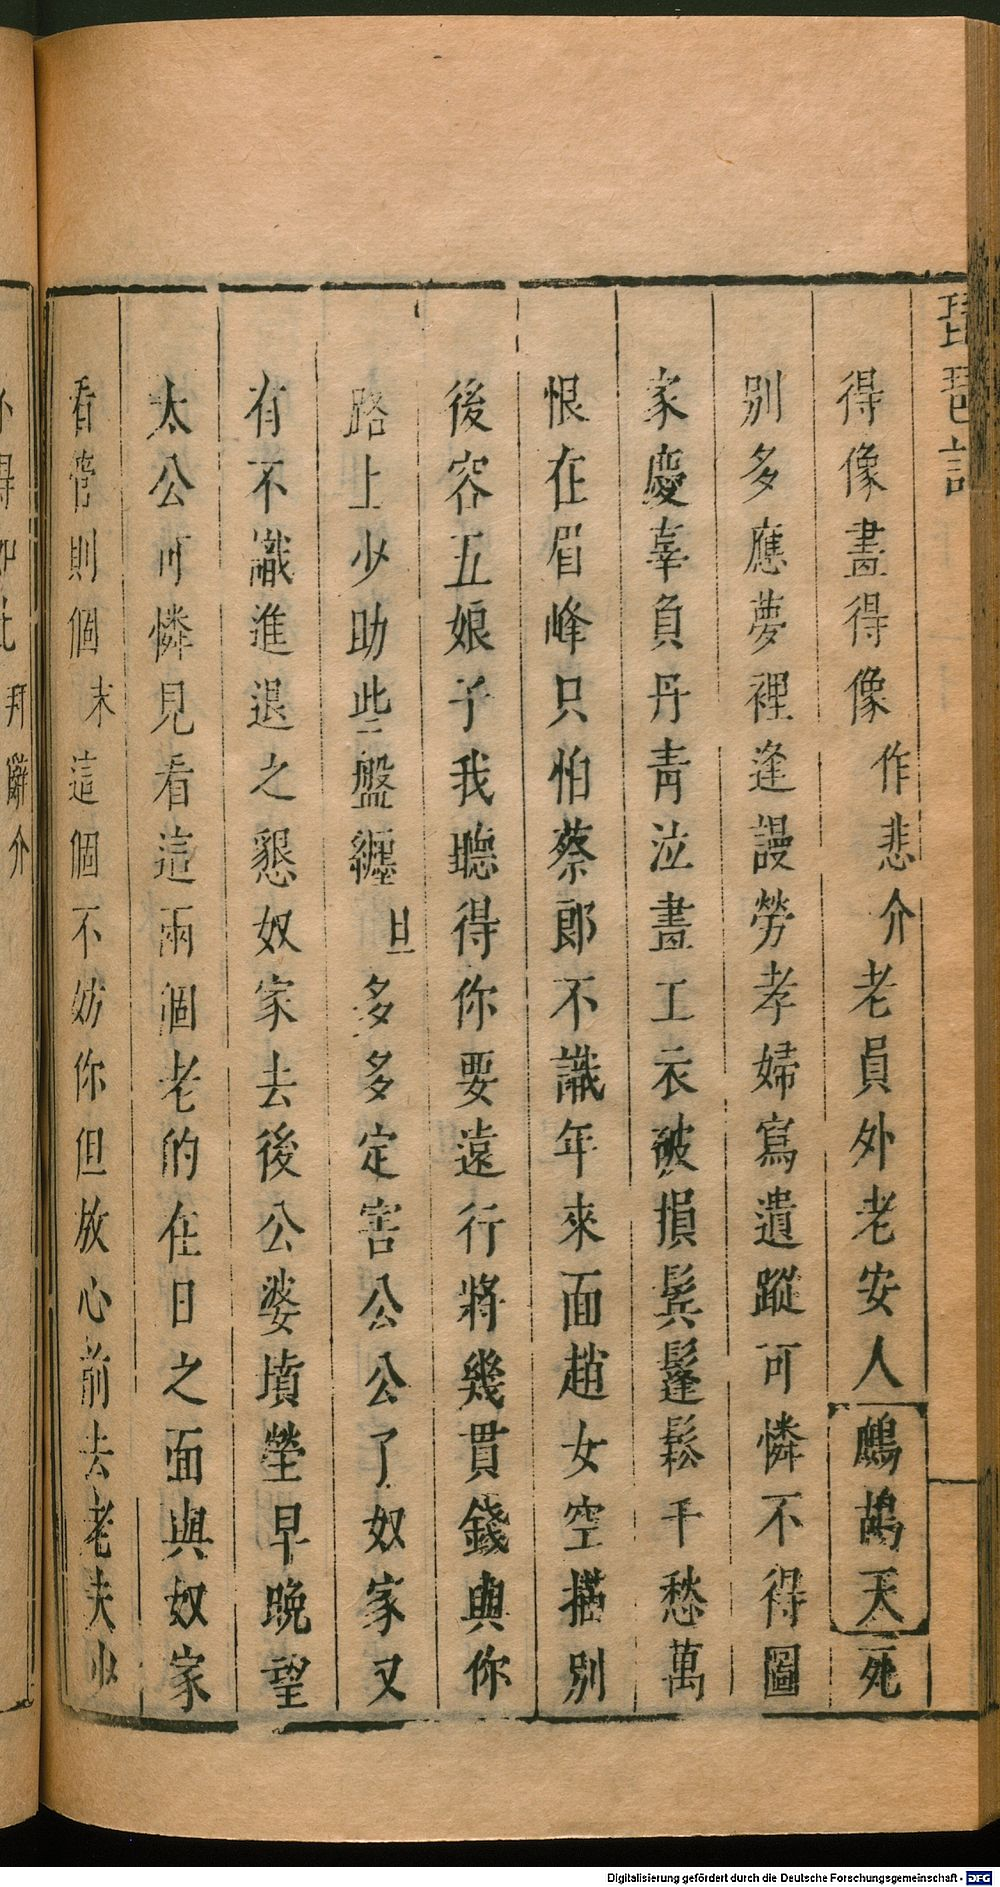 琵琶記
得像畫得像作悲介老員外老安人鷓鴣天死
別多應夢裡逢謾勞孝婦寫遺蹤可憐不得圖
家慶辜負丹青泣畫工衣破損鬂鬔鬆千愁萬
恨在眉峰只怕蔡郎不識年來面趙女空描別
後容五娘子我聽得你要遠行將幾貫錢與你
路上少助些盤纏旦多多定害公公了奴家又
有不識進退之懇奴家去後公婆墳塋早晚望
太公可憐見看這兩個老的在日之面與奴家
看管則個末這個不妨你但放心前去老夫少
不得如此拜辭介
Digitalisierung gefördert durch die Deutsche Forschungsgemeinschaft - DFG